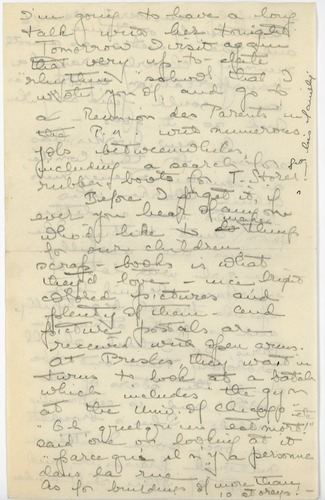 I'm going to have a long
talk with her tonight.
Tomorrow I visit again
that very up-to-date
"rhythm" school that I
wrote you of, and go to
a Reunion des Parents in
the P.M. with numerous
jobs betweenwhiles,
including a search for
rubber boots for T. Storer
& his family
Before I forget it, if
ever you hear of anyone
who'd like to make things
for our children,
scrap-books is what
they'd love - nice bright
colored pictures and
plenty of them - and
picture postals are
received with open arms.
At Presles, they wait in
turns to look at a batch
which includes "the gym
at the Univ. of Chicago" etc
"Et quelqu'un est mort!"
said one on looking at it
"parce que il n'y a personne
dans la rue"
As for buildings of more than
10 storeys -